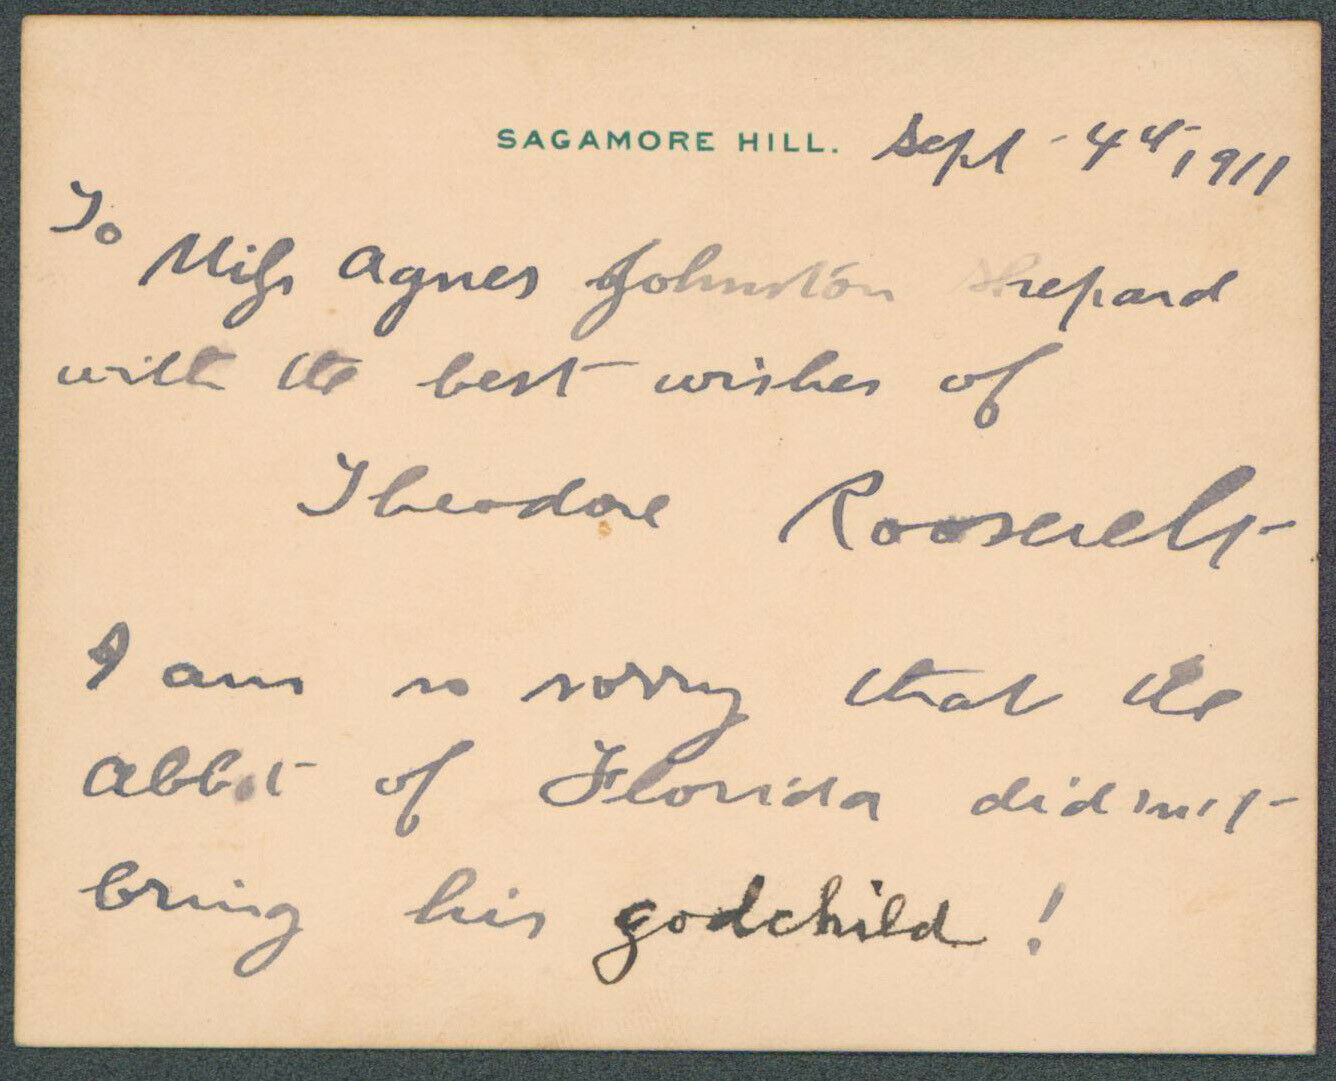 SAGAMORE HILL. Sept - 4th, 1911
To
Miss Agnes Johnston Shepard
with the best wishes of
Theodore Roosevelt
I am so sorry that the
Abbot of Florida did not
bring his godchild!